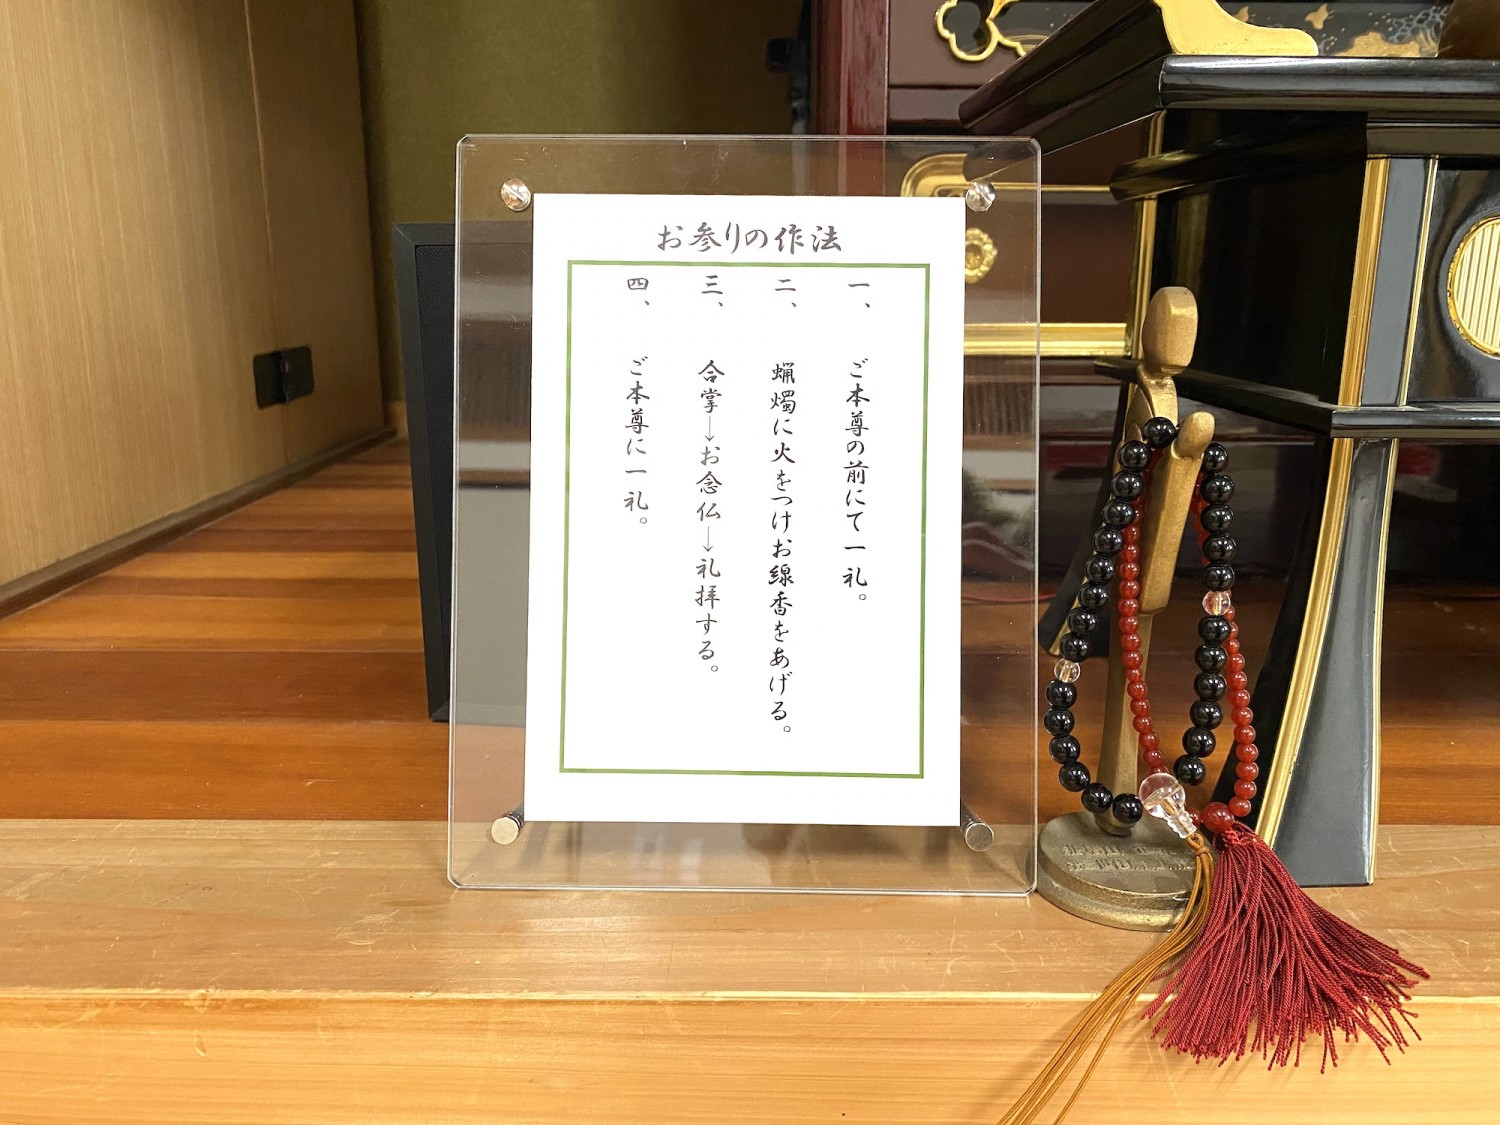 お参りの作法
一、 ご本尊の前にて一礼。
二、 蝋燭に火をつけお線香をあげる。
三、 合掌→お念仏→礼拝する。
四、 ご本尊に一礼。